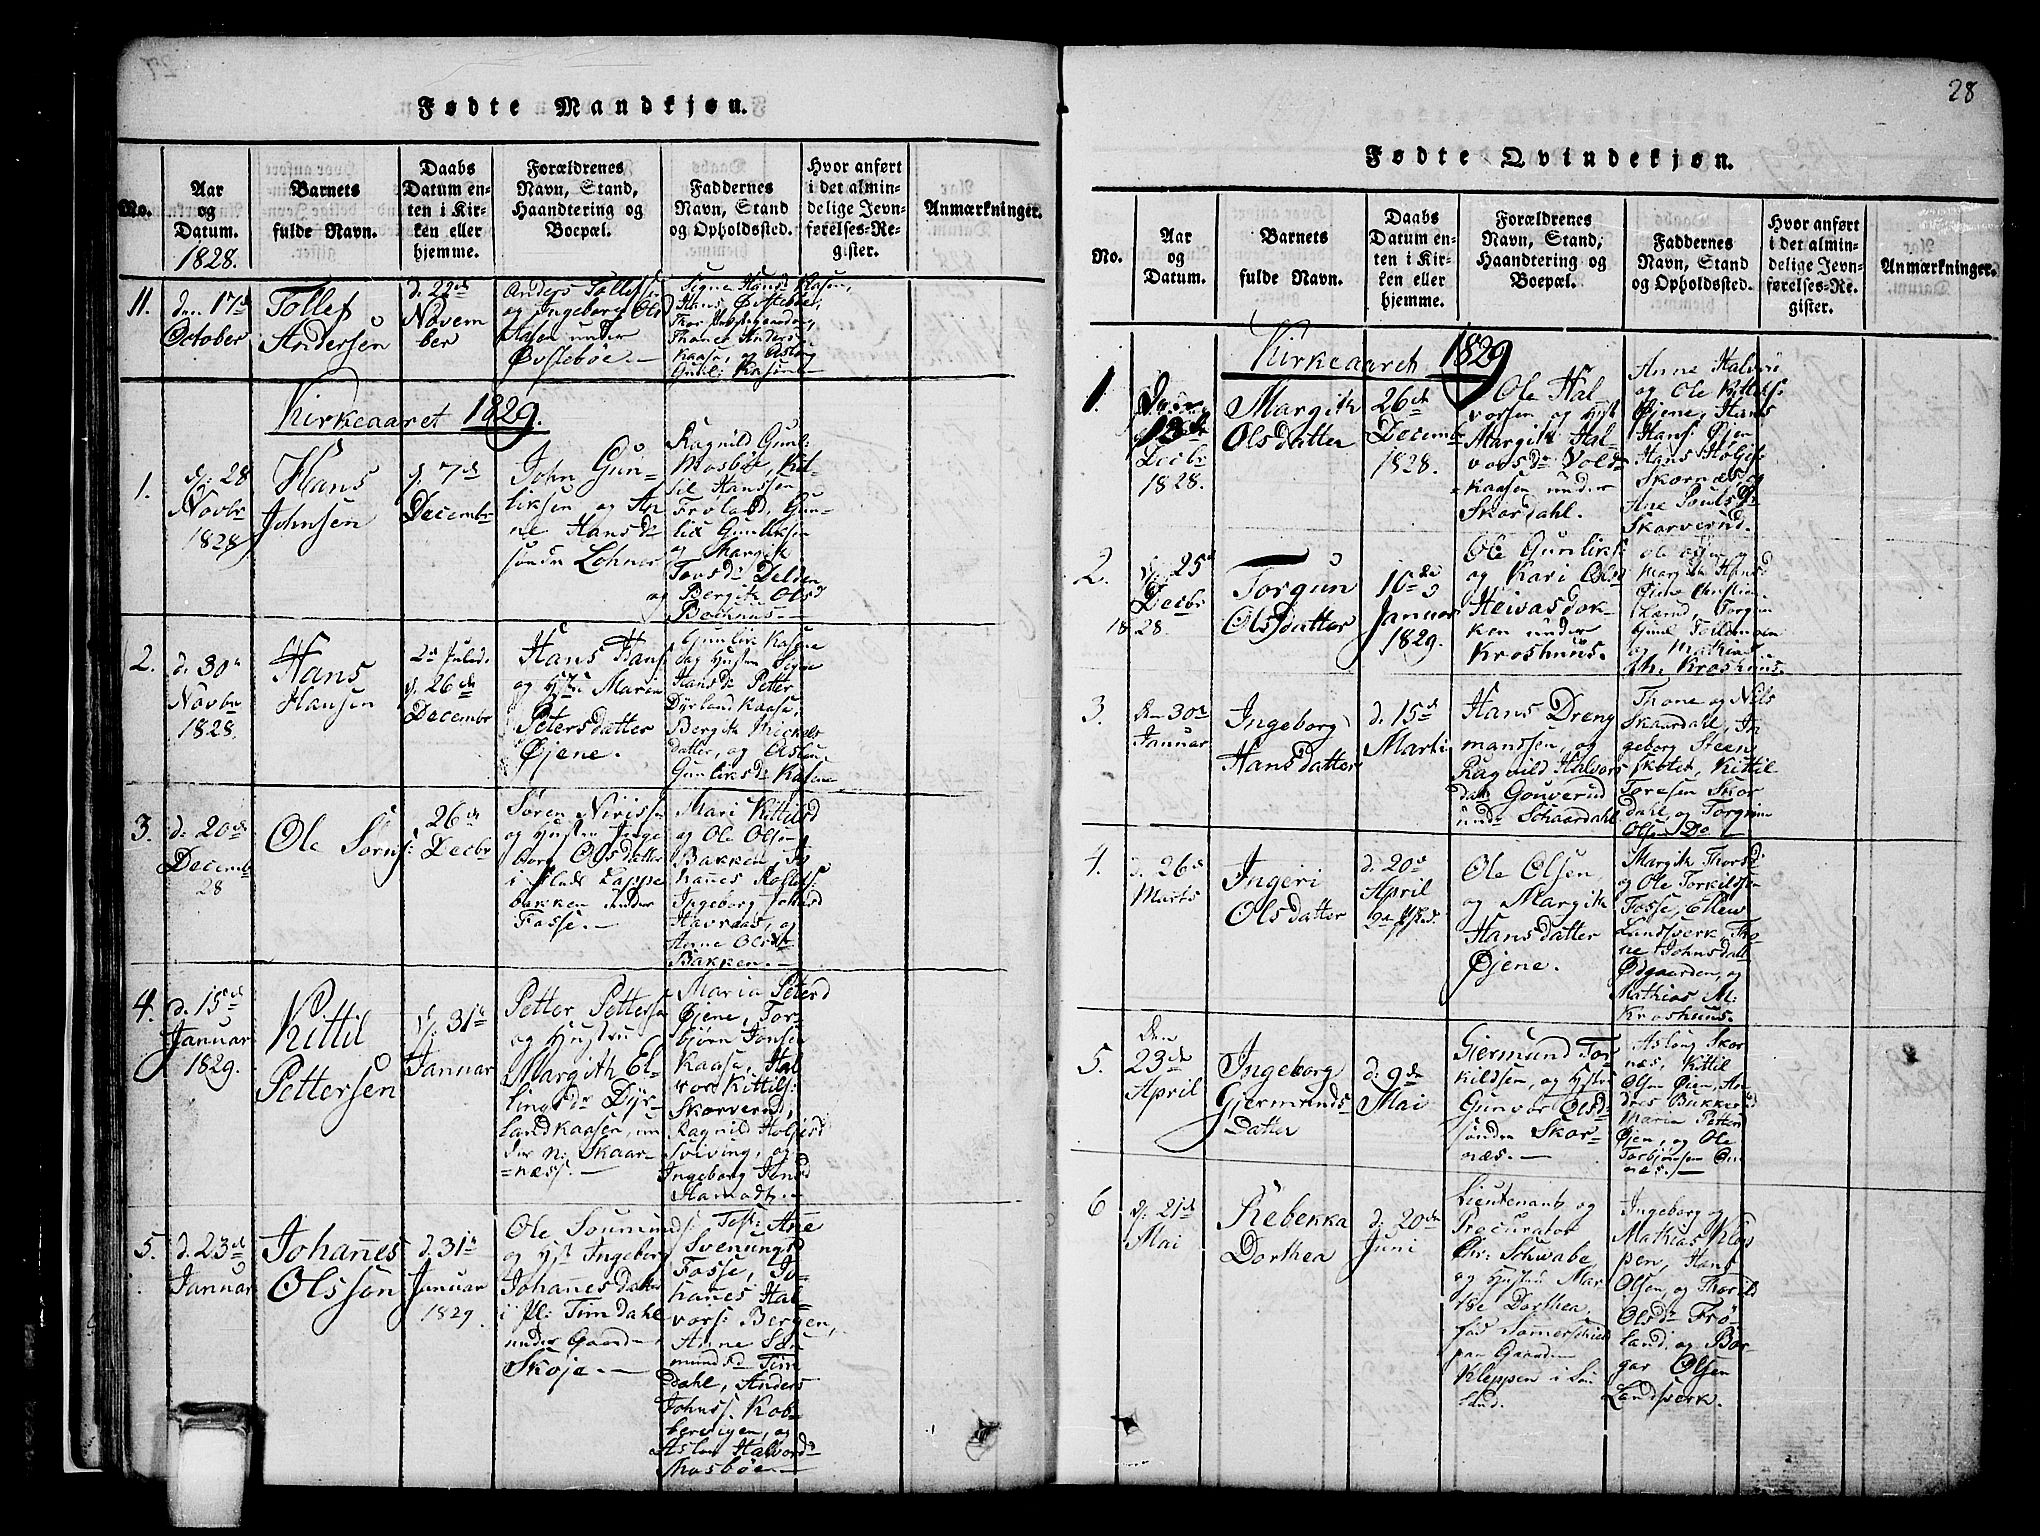 28
Fødte Mandkjøn.
No.
Aar
og
Datum.
1828.
Barnets
fulde Navn.
Daabs
Datum en-
ten i Kir-
ken eller
hjemme.
Forældrenes
Navn, Stand,
Haandtering og
Boepæl.
Faddernes
Navn, Stand
og Opholdssted.
Hvor anført
i det almin-
delige Jevn-
førelses-Re-
gister.
Anmærkninger.
11.
den 17de
October
Tollef
Andersen
d. 22de
Novem
ber
Anders Tollefsen
og Ingeborg Olsd
Kaasen under
Øvstebøe.
Signe Hansd Kaasen,
Hans Øvstebøe,
Thone Anders
Kaasen, og Aslaug
Gunl: Kasin
Kirkeaaret 1829.
1.
d. 28
Novbr
1828
Hans
Johnsen
d. 7de
Decembr
John Gun-
liksen og An
ne Hansdr
søndre Lohner
Ragnild Gunl:
Mosbøe, Kit-
til Hanssen
Frøland, Gun-
lik Gunliksen
og Margith
Tovsdr Delden
og Bergith Olsd
Bochuus.
2.
d. 30te
Novbr
1828.
Hans
Hansen
2d Juled.
d. 26de
Decembr
Hans Hans:
og Hstr Maren
Petersdatter
Øjene.
Gunlik Kasene
og Hustru Signe
Hansdr Petter
Dyrlandkaase,
Bergith Mickels
datter, og Aslau
Gunliksdr Kasene
3.
d. 20de
Decembr
28
Ole Sørns:
26de
Decbr
Søren Nirisse
og Hustru Inge
borg Olsdatter
i Plads Lappe
bakken under
Fosse.
Mari Kittilsd
og Ole Olsen
Bakken, Jo
hannes Rolefs:
Ingeborg
Havraas, og
Anne Olsdr
Bakken.
4.
d. 15de
Januar
1829.
Kittil
Pettersen
d. 31te
Januar
Petter Petterse
og Hustru
Margith El-
lingsdr Dyr-
landkaasen, un
der n: Skaar
=næss.
Maria Petersd
Øjene, Tor-
bjørn Jonsen
Kaase, Hal
vor Kittils:
Skorvernd,
Ragnild Holjersd
Sviving, og
Ingeborg Jonsd
5.
d. 23de
Januar
Johannes
Olsson
d. 31te
Januar
1829.
Ole Soumunds:
og Hst Ingeborg
Johannesdatter
i Pl: Timdahl
under Gaard
Skoje.
Test: Ane
Svenungsd
Fosse, Jo-
hannes Hal-
vors: Bergen,
Anne So-
mundsd Tim
dahl, Anders
Johnss. Kob-
bervigen, og
Aslau Halvordr
Mosbøe.
Fødte Qvindekjøn.
No.
Aar
og
Datum.
Barnets
fulde Navn.
Daabs
Datum en-
ten i Kir-
ken eller
hjemme.
Forældrenes
Navn, Stand,
Haandtering og
Boepæl.
Faddernes
Navn, Stand
og Opholdssted.
Hvor anført
i det almin-
delige Jevn-
førelses-Re-
gister.
Anmærkninger.
Kirkeaaret 1829
1.
13de
Decbr
1828.
Margith
Olsdatter
26de
Decembr
1828.
Ole Hal
vorsen og Hst
Margith Hal
vorsdr Vold
=kaasen under
Skordahl.
Anne Halvor
og Ole Kittels:
Øjene, Hans
Hans: Øjen
Hans Holjes:
Skornæs, og
Ane Poulsdr
Skorvernd.
2.
d. 25de
Decbr
1828.
Torgun
Olsdatter
16de
Januar
1829.
Ole Gunlikk
og Kari Olsd
Heivasdok-
ken under
Kroshuus.
Ole Olsen og
Margith Hansd
Øjene, Christian
Lund, Torgun
Gunl
og Mathias
M. Kroshuus.
3.
den 30te
Januar
Ingeborg
Hansdatter
d. 15de
Marti
Hans Dreng
mandssen, og
Ragnild Halvors
datr Gouverud
undr Schaardahl
Thone og Nils
Skaardall, In
geborg Steen
Kittil
Toresen Skor
dahl, og Torgrim
Olsen Do
4.
d. 26de
Marts
Ingeri
Olsdatter
d. 20de
April
Ole Olsen,
og Margith
Hansdatter
Øjene.
Margith Thorsd
og Ole Torkildsen
Fosse, Ellev
Landsverk, Tho
ne Johnsdatt
Ødgaarden, og
Mathias M:
Kroshuus.
5.
Den
23de
April
Ingeborg
Gjermunds
Datter
d. 9de
Mai
Gjermund Tor
kildsen, og Hstr
Gunvor Olsdr
søndre Skor-
næs.
Aslaug Skor
næs, Kittil
Olsen Øien, An
dres Bukkerud
Maria Petter
Øjen, og Ole
Torbjønsen
næs.
6
d. 21de
Mai
Rebekka
Dorthea
d. 20de
Juni
Lieutenant og
Procurator
Chr: Schwabe,
og Hustru Mar
the Dorthea,
fød Sommerschield
paa Gaarden
Kleppen i
Ingeborg og
Mathias Klep
pen, Hans
Olsen, og Thorild
Olsdr Frø-
land, og Bor-
gar Olsen
Landsverk.